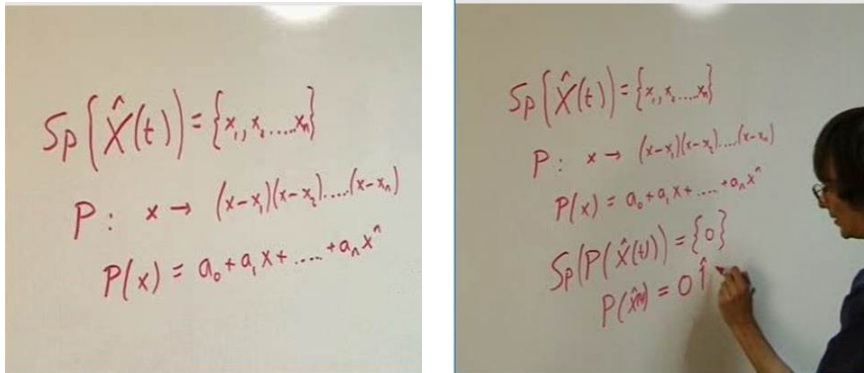 Sp(X̂(t)) = {x₁, x₂ ..... xₙ}
P : x → (x-x₁)(x-x₂)....(x-xₙ)
P(x) = a₀ + a₁x + ..... + aₙxⁿ
Sp(X̂(t)) = {x₁, x₂ ..... xₙ}
P : x → (x-x₁)(x-x₂)....(x-xₙ)
P(x) = a₀ + a₁x + ..... + aₙxⁿ
Sp(P(X̂(t)) = {0}
P(X̂(t)) = 0 1̂